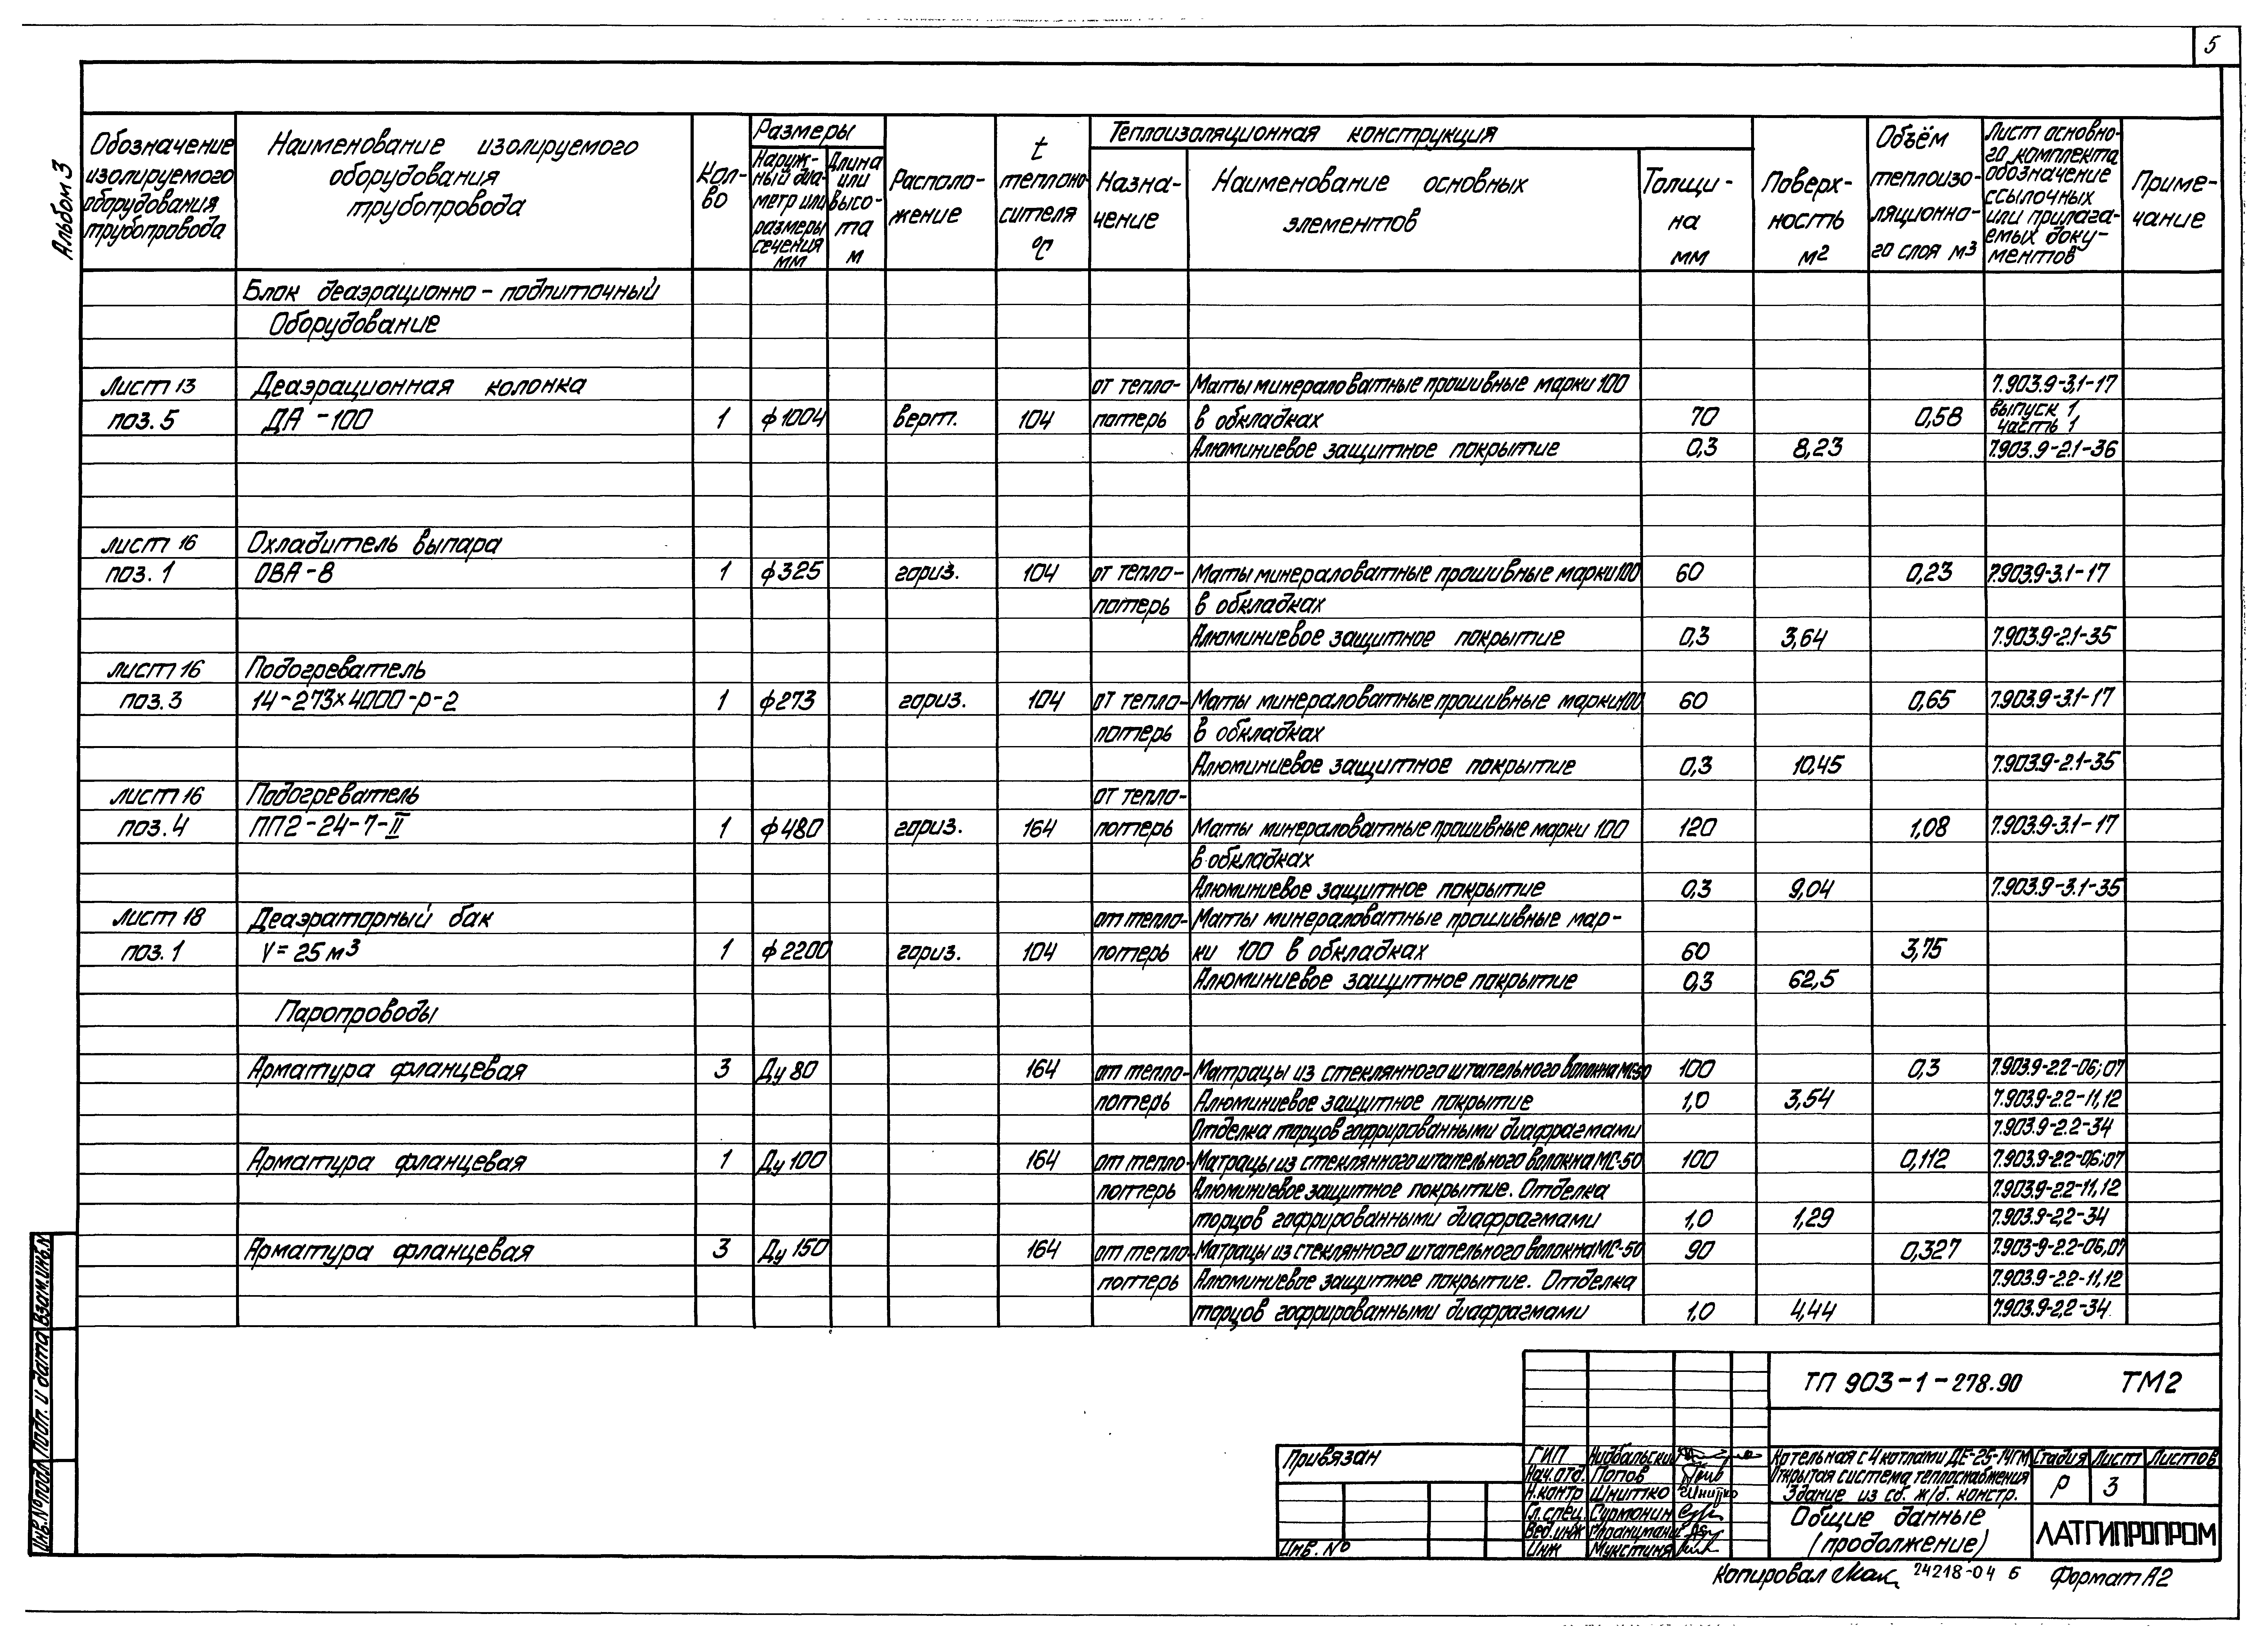 5
Альбом 3
Обозначение изолируемого оборудования трубопровода
Наименование изолируемого оборудования трубопровода
Кол-во
Размеры
Наруж-ный диа-метр или размеры сечения мм
Длина или высо-та м
Располо-жение
t теплоно-сителя °С
Теплоизоляционная конструкция
Назна-чение
Наименование основных элементов
Толщи-на мм
Поверх-ность м2
Объём теплоизо-ляционно-го слоя м3
Лист основно-го комплекта обозначение ссылочных или прилага-емых доку-ментов
Приме-чание
Блок деаэрационно-подпиточный
Оборудование
Лист 13 Деаэрационная колонка от тепло- Маты минераловатные прошивные марки 100 7.903.9-3.1-17
поз. 5 ДА-100 1 ф1004 верт. 104 потерь в обкладках 70 0,58 выпуск 1, часть 1
Алюминиевое защитное покрытие 0,3 8,23 7.903.9-2.1-36
лист 16 Охладитель выпара
поз. 1 ОВА-8 1 ф325 гориз. 104 от тепло- Маты минераловатные прошивные марки 100 60 0,23 7.903.9-3.1-17
потерь в обкладках
Алюминиевое защитное покрытие 0,3 3,64 7.903.9-2.1-35
лист 16 Подогреватель
поз. 3 14-273х4000-р-2 1 ф273 гориз. 104 от тепло- Маты минераловатные прошивные марки 100 60 0,65 7.903.9-3.1-17
потерь в обкладках
Алюминиевое защитное покрытие 0,3 10,45 7.903.9-2.1-35
лист 16 Подогреватель от тепло-
поз. 4 ПП2-24-7-II 1 ф480 гориз. 164 потерь Маты минераловатные прошивные марки 100 120 1,08 7.903.9-3.1-17
в обкладках
Алюминиевое защитное покрытие 0,3 9,04 7.903.9-3.1-35
лист 18 Деаэраторный бак от тепло- Маты минераловатные прошивные мар-
поз. 1 V=25 м3 1 ф2200 гориз. 104 потерь ки 100 в обкладках 60 3,75
Алюминиевое защитное покрытие 0,3 62,5
Паропроводы
Арматура фланцевая 3 Ду 80 164 от тепло- Матрацы из стеклянного штапельного волокна МС50 100 0,3 7.903.9-2.2-06;07
потерь Алюминиевое защитное покрытие 1,0 3,54 7.903.9-2.2-11,12
Отделка торцов гофрированными диафрагмами 7.903.9-2.2-34
Арматура фланцевая 1 Ду 100 164 от тепло- Матрацы из стеклянного штапельного волокна МС-50 100 0,112 7.903.9-2.2-06;07
потерь Алюминиевое защитное покрытие. Отделка 7.903.9-2.2-11,12
торцов гофрированными диафрагмами 1,0 1,29 7.903.9-2,2-34
Арматура фланцевая 3 Ду 150 164 от тепло- Матрацы из стеклянного штапельного волокна МС-50 90 0,327 7.903-9-2.2-06,07
потерь Алюминиевое защитное покрытие. Отделка 7.903.9-2.2-11,12
торцов гофрированными диафрагмами 1,0 4,44 7.903.9-2.2-34
Инв.№подл Подп. и дата Взам.инв.№
Привязан
Инв. №
ТП 903-1-278.90 ТМ2
ГИП Нидбальский
Нач.отд. Попов
Н.контр Шнитко
Гл.спец. Сурмонин
Вед.инж
Инж Мукстиня
Котельная с 4 котлами ДЕ-25-14ГМ
Открытая система теплоснабжения
Здание из сб. ж/б. констр.
Стадия Лист Листов
Р 3
Общие данные
(продолжение)
ЛАТГИПРОПРОМ
Копировал 24218-04 6 Формат А2